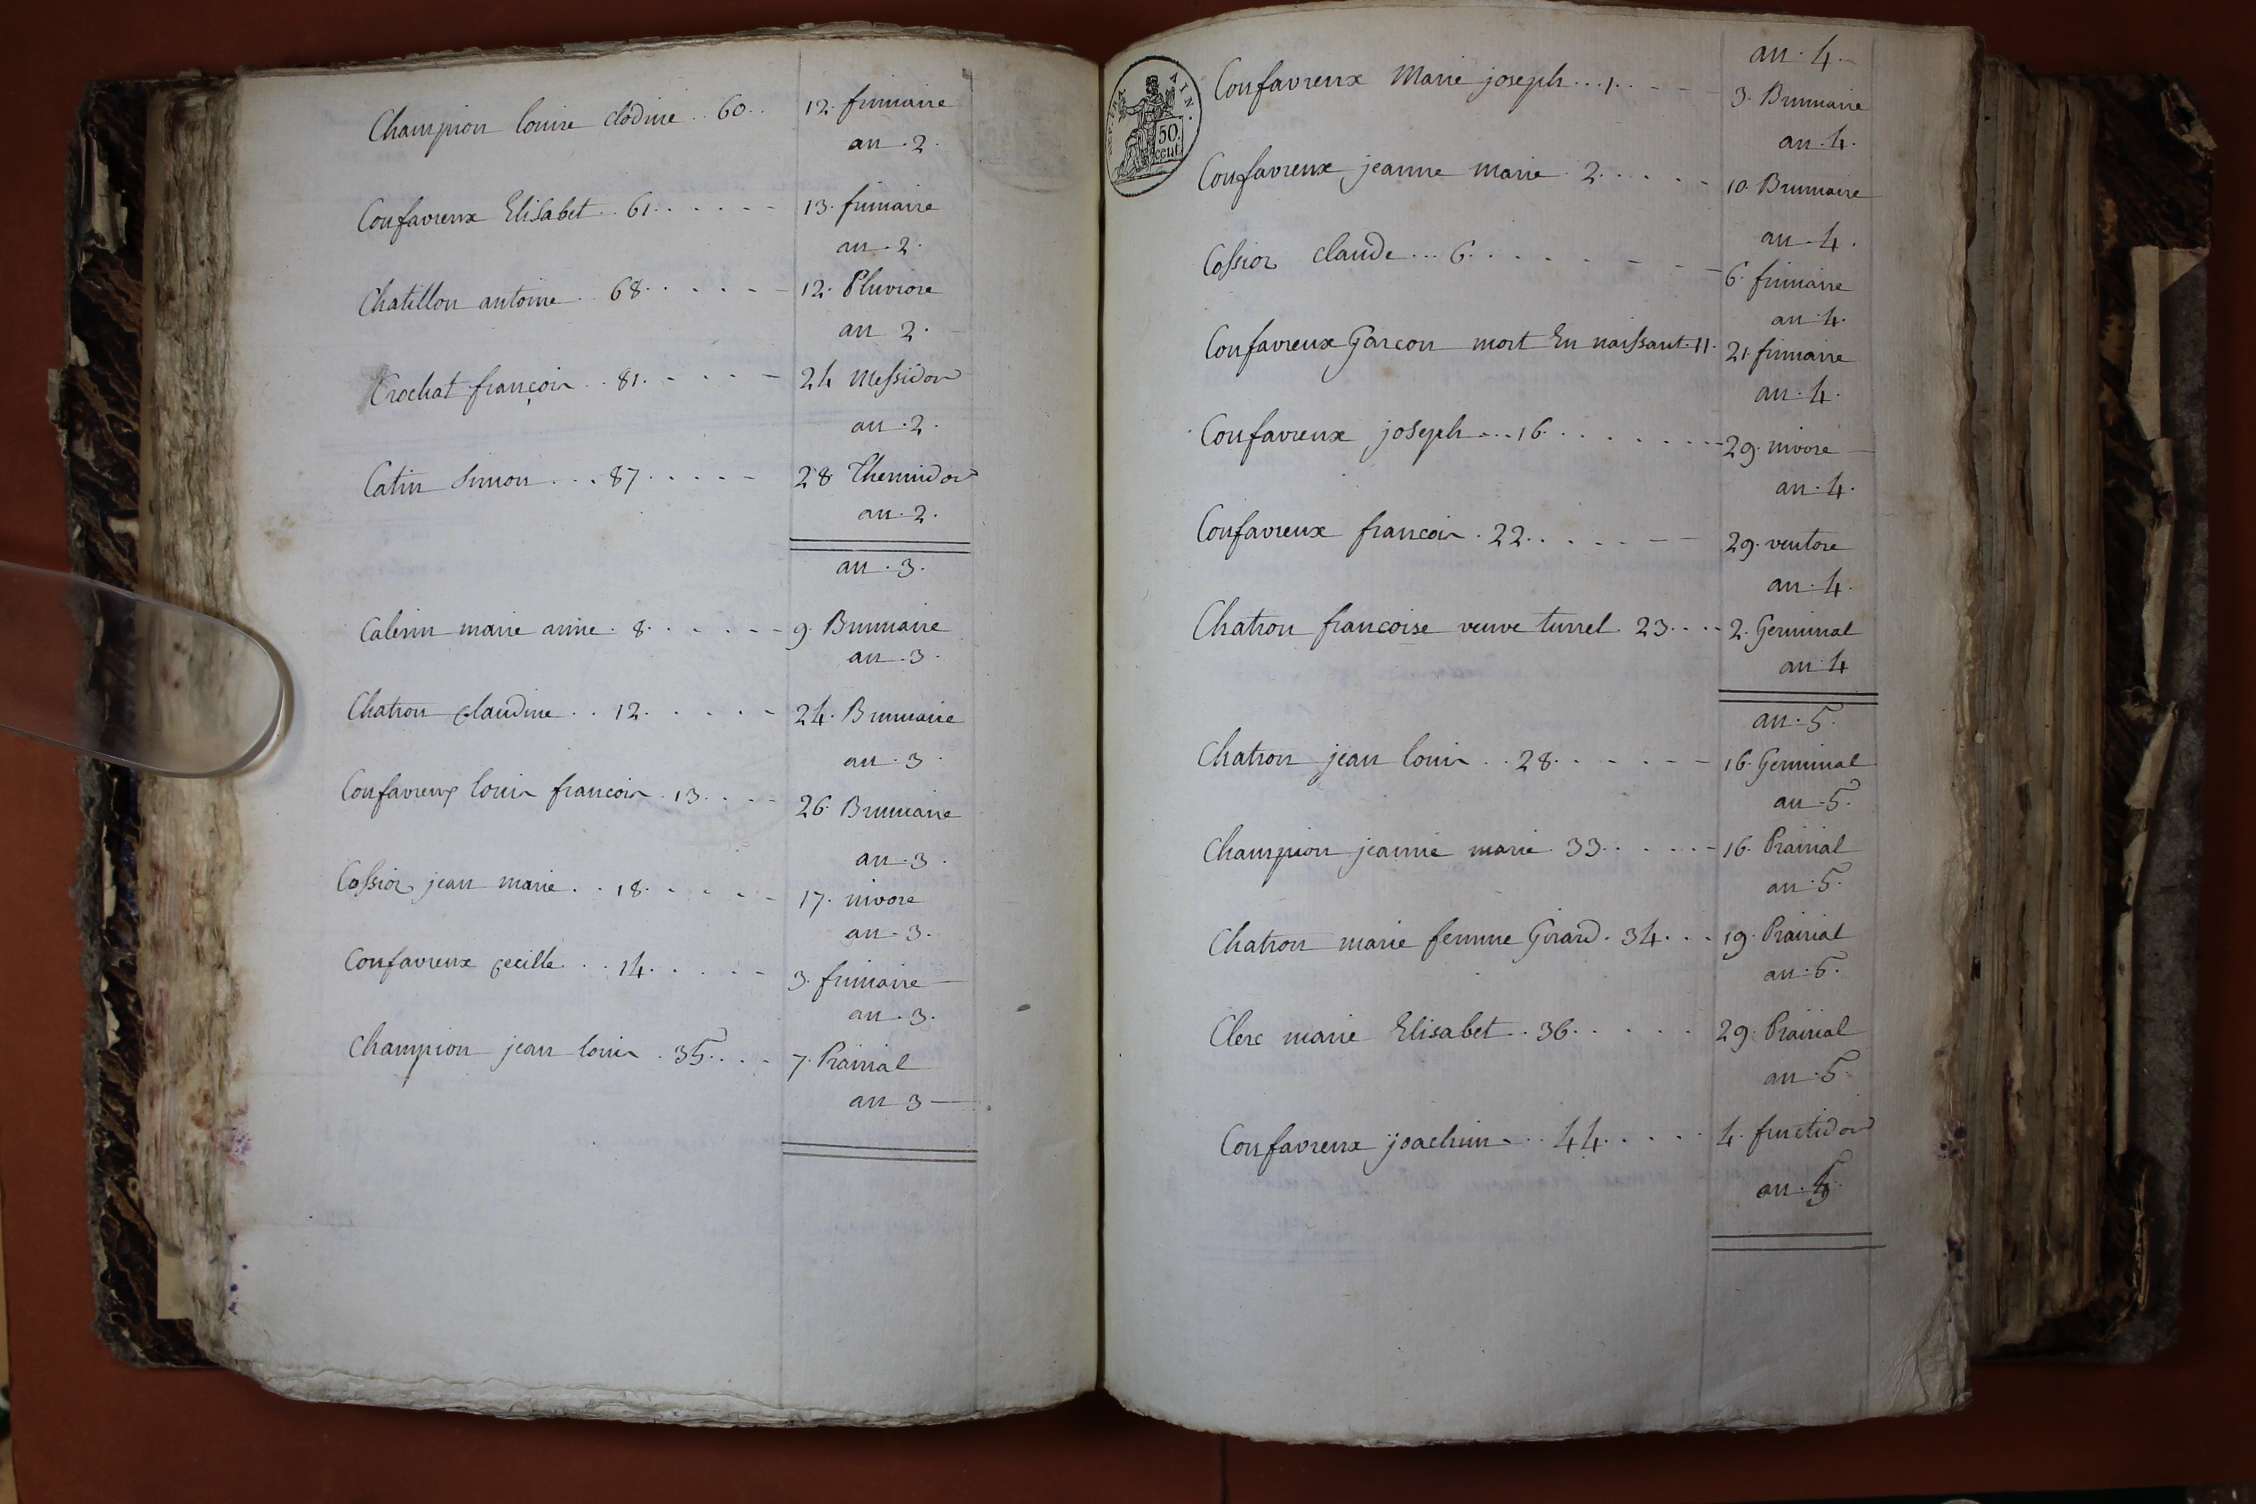 Champion louise clodine .. 60.. 12. frimaire
an . 2.
Confavreux Elisabet .. 61 . . . . . . 13. frimaire
an . 2.
Chatillon antoine .. 68. . . . . . 12. Pluviose
an 2.
Crochat françois .. 81. . . . . 24 Messidor
an . 2.
Catin Simon . . . 87 . . . . . 28 Thermidor
an . 2.
an . 3.
Calerin marie anne . 8. . . . . . 9. Brumaire
an . 3.
Chatron claudine . . 12. . . . . . 24. Brumaire
an . 3.
Confavreux louis francois . 13. . . . 26. Brumaire
an . 3.
Cossior jean marie . . 18. . . . . 17. nivose
an . 3.
Confavreux cecille . . 14. . . . . . 3. frimaire
an . 3.
Champion jean louis . 35. . . . 7. Prairial
an 3
REP. FRA
AIN.
50.
cent.
an . 4.
Confavreux Marie joseph . . . 1. . . . 3. Brumaire
an . 4.
Confavreux jeanne marie . 2. . . . . . 10. Brumaire
an . 4.
Cossior claude . . . 6. . . . . . . . 6. frimaire
an . 4.
Confavreux Garcon mort En naissant . 11. 21. frimaire
an . 4.
Confavreux joseph . . . 16. . . . . . . . 29. nivose
an . 4.
Confavreux francois . 22. . . . . . . 29. ventose
an . 4.
Chatron francoise veuve turrel . 23. . . . 2. Germinal
an . 4
an . 5.
Chatron jean louis . . 28. . . . . . . 16. Germinal
an . 5.
Champion jeanne marie . 33. . . . . . 16. Prairial
an . 5.
Chatron marie femme Girard . 34. . . 19. Prairial
an . 6.
Clerc marie Elisabet . 36. . . . . . 29. Prairial
an . 5.
Confavreux joachim . . . 44. . . . . . 4. fructidor
an . 5.